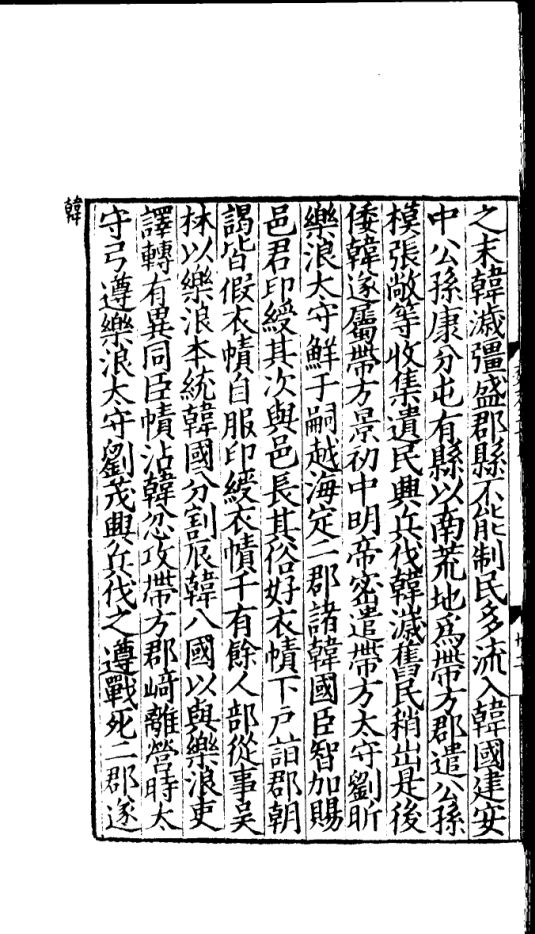 之末韓濊彊盛郡縣不能制民多流入韓國建安
中公孫康分屯有縣以南荒地爲帶方郡遣公孫
模張敞等收集遺民興兵伐韓濊舊民稍出是後
倭韓遂屬帶方景初中明帝密遣帶方太守劉昕
樂浪太守鮮于嗣越海定二郡諸韓國臣智加賜
邑君印綬其次與邑長其俗好衣幘下戶詣郡朝
謁皆假衣幘自服印綬衣幘千有餘人部從事吳
林以樂浪本統韓國分割辰韓八國以與樂浪吏
譯轉有異同臣幘沾韓忿攻帶方郡崎離營時太
守弓遵樂浪太守劉茂興兵伐之遵戰死二郡遂
韓